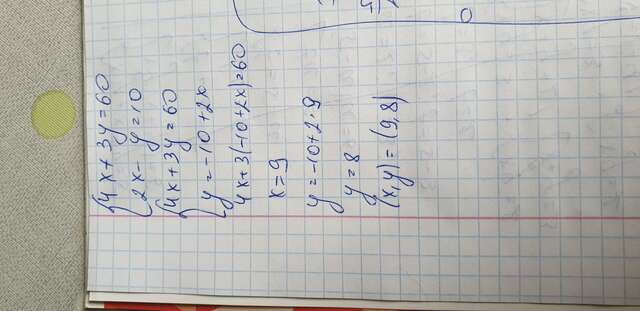 {4x + 3y = 60
{2x - y = 10
{4x + 3y = 60
{y = -10 + 2x
4x + 3(-10 + 2x) = 60
x = 9
y = -10 + 2 · 9
y = 8
(x, y) = (9, 8)